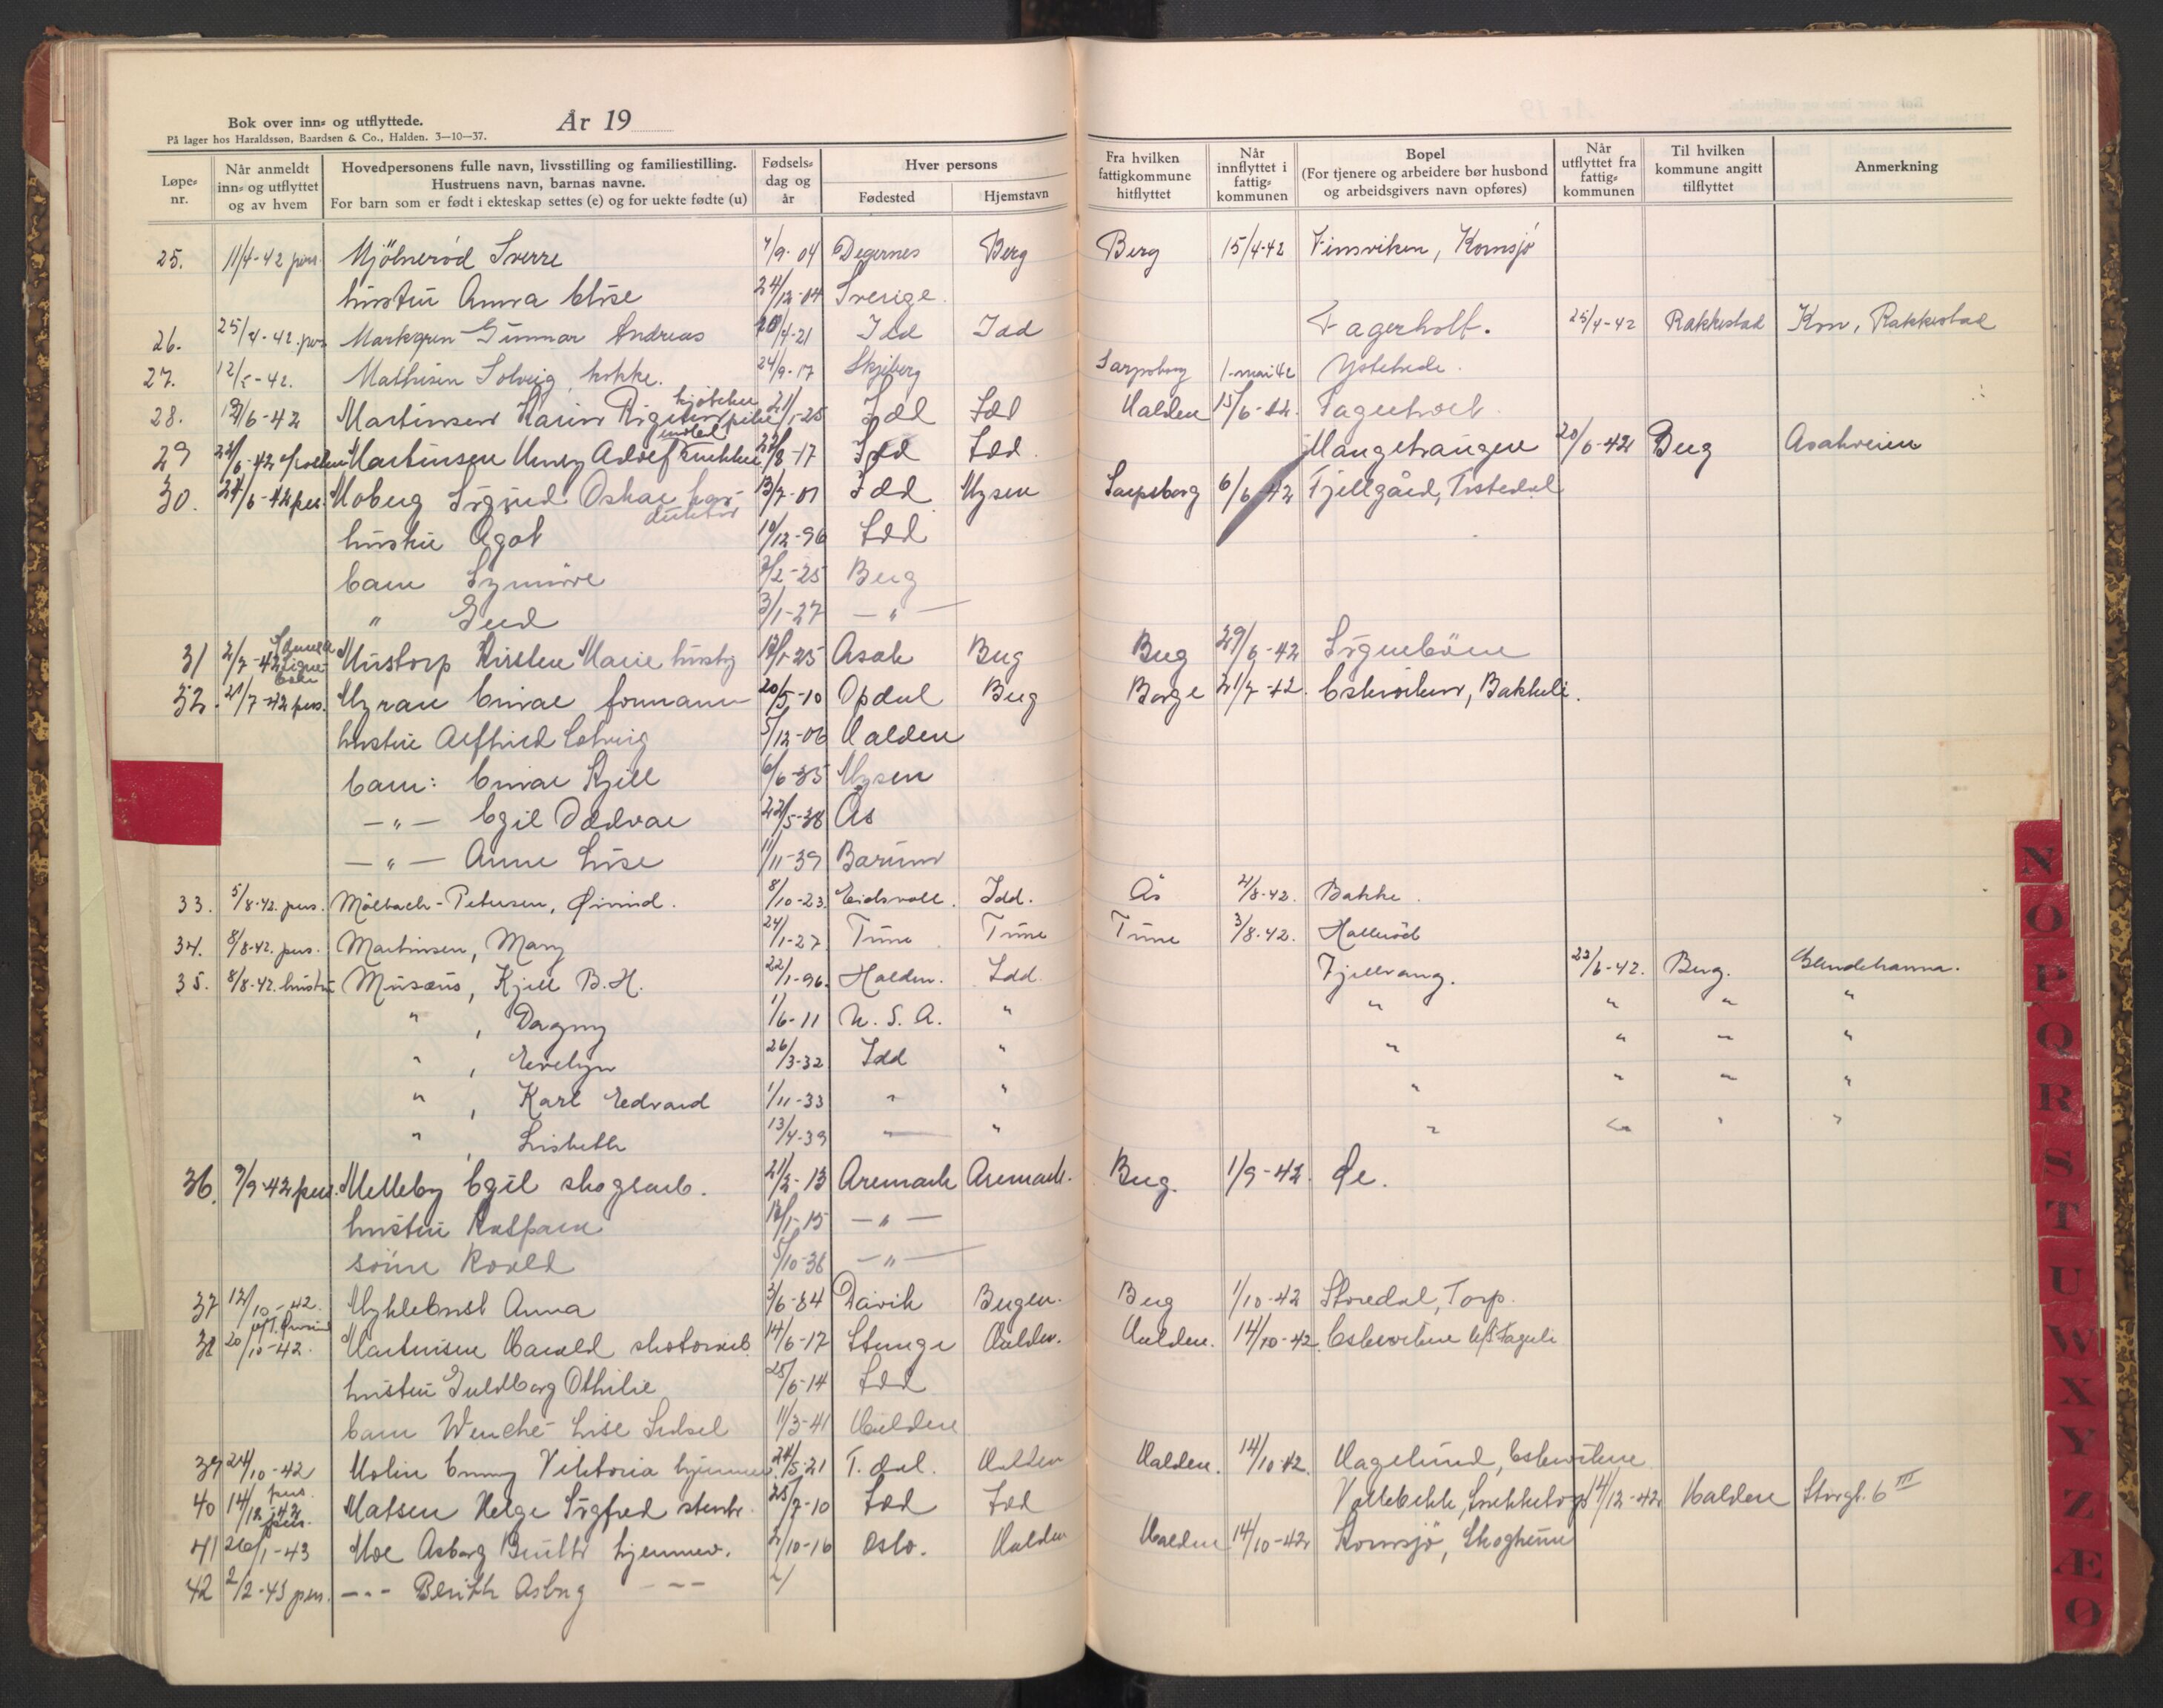 Bok over inn- og utflyttede.
På lager hos Haraldssøn, Baardsen & Co., Halden. 3—10—37.
År 19
Løpe-nr.
Når anmeldt inn- og utflyttet og av hvem
Hovedpersonens fulle navn, livsstilling og familiestilling. Hustruens navn, barnas navne. For barn som er født i ekteskap settes (e) og for uekte fødte (u)
Fødsels-dag og år
Hver persons
Fødested
Hjemstavn
Fra hvilken fattigkommune hitflyttet
Når innflyttet i fattig-kommunen
Bopel (For tjenere og arbeidere bør husbond og arbeidsgivers navn opføres)
Når utflyttet fra fattig-kommunen
Til hvilken kommune angitt tilflyttet
Anmerkning
25. 11/4-42 pers. Mjölnerød Sverre 7/9-04 Degernes Berg Berg 15/4-42 Finsviken, Kornsjö
hustru Anna Elise 24/12-04 Sverige.
26. 25/4-42. pers Markgren Gunnar Andreas 28/4-21 Idd Idd Fagerholt. 25/4-42 Rakkestad Krn, Rakkestad
27. 12/5-42. Mathisen Solveig, kokke. 24/9-17 Skjeberg Sarpsborg 1-mai 42 Ystehede.
28. 12/6-42 Martinsen Karin 21/1-25 Idd Idd Halden 15/6-42. Fagerholt.
29 22/6-42 Martinsen Henry Adolf 22/8-17 Idd Idd. Mangehaugen 20/6-42 Berg Asakveien
30. 24/6-42 pers. Moberg Sigurd Oskar 13/7-01 Idd Mysen Sarpsborg 6/6 42 Fjellgård, Tistedal
hustru Agot 10/12-96 Idd
barn Synnöve 2/2-25 Berg
" Gerd 3/1-27 — " —
31 2/7-42 Mustorp Kirsten Marie 12/1-25 Asak Berg Berg 29/6-42 Signeböen
32. 21/7-42 pers. Myran Einar formann 20/5-10 Opdal Berg Borge 21/7-42. Eskeviken, Bakkeli.
hustru Alfhild Solveig 5/12-06 Halden
barn: Einar Kjell 6/6-35 Mysen
— " — Egil Oddvar 22/5-38 Ås
— " — Anne Lise 11/11-39 Bærum
33. 5/8-42. pers. Mölbach-Petersen, Øivind. 8/10-23. Eidsvoll. Idd. Ås 4/8-42. Bakke.
34. 8/8-42. pers. Martinsen, Mary 24/1-27 Tune Tune Tune 3/8-42. Halleröd
35. 8/8-42. hustru Musæus, Kjell B.H. 22/1-96. Halden. Idd. Fjellvang. 23/6-42. Berg.
" , Dagny 1/6-11 U.S.A. " " " " "
" , Evelyn 26/3-32 Idd " " " " "
" , Karl Edvard 1/11-33 " " " " " "
" , Lisbeth 13/4-39 " " " " " "
36. 9/9-42 pers. Melleby Egil skogsarb. 21/2-13 Aremark Aremark. Berg. 1/9-42. Øe.
hustru 12/1-15 — " —
sönn Roald 5/10-36 — " —
37 12/10-42. Myklebust Anna 3/6-84 Davik Bergen. Berg 1/10-42 Storedal, Torp.
38 20/10-42. Martinsen Harald 14/6-17 Stange Halden. Halden. 14/10-42.
hustru Guldborg Othilie 25/6-14 Idd
barn Wenche Lise Sidsel 11/3-41 Halden
39 24/10-42 Molin Emmy Viktoria 24/5-21 T. dal. Halden Halden. 14/10-42. Hagelund, Eskeviken
40 14/12-42 pers. Matsen Helge Sigfred 25/7-10 Idd Idd 14/12-42 Halden Storgt. 6 III
41 26/1-43 Moe Asborg Berith hjemmev. 2/10-16 Oslo. Halden Halden 14/10-42 Kornsjö, Skogheim
42 2/2-43 pers. - - - Berith Asborg - - - 2/
N
O
P
Q
R
S
T
U
W
X
Y
Z
Æ
Ø